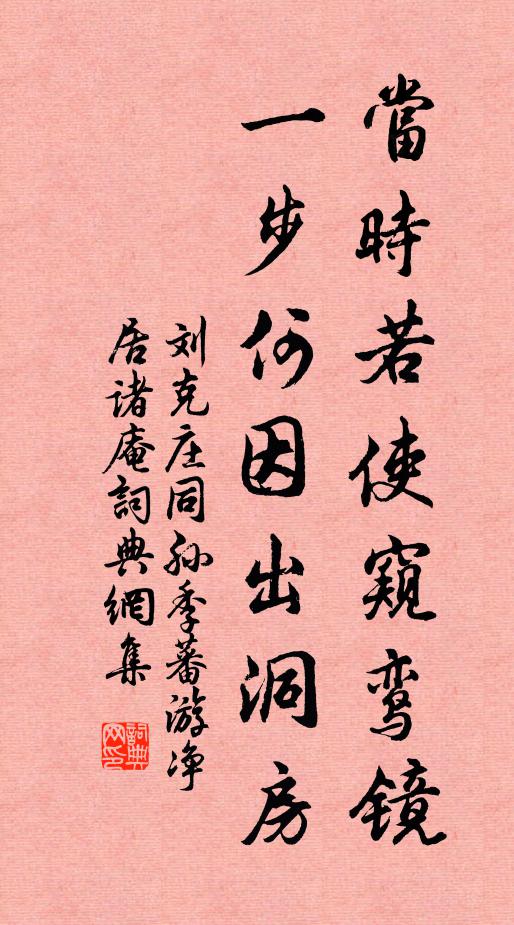 當時若使窺鸾镜
一步何因出洞房
刘克庄同孙季蕃游净
居诸庵詞典網集
詞典网印